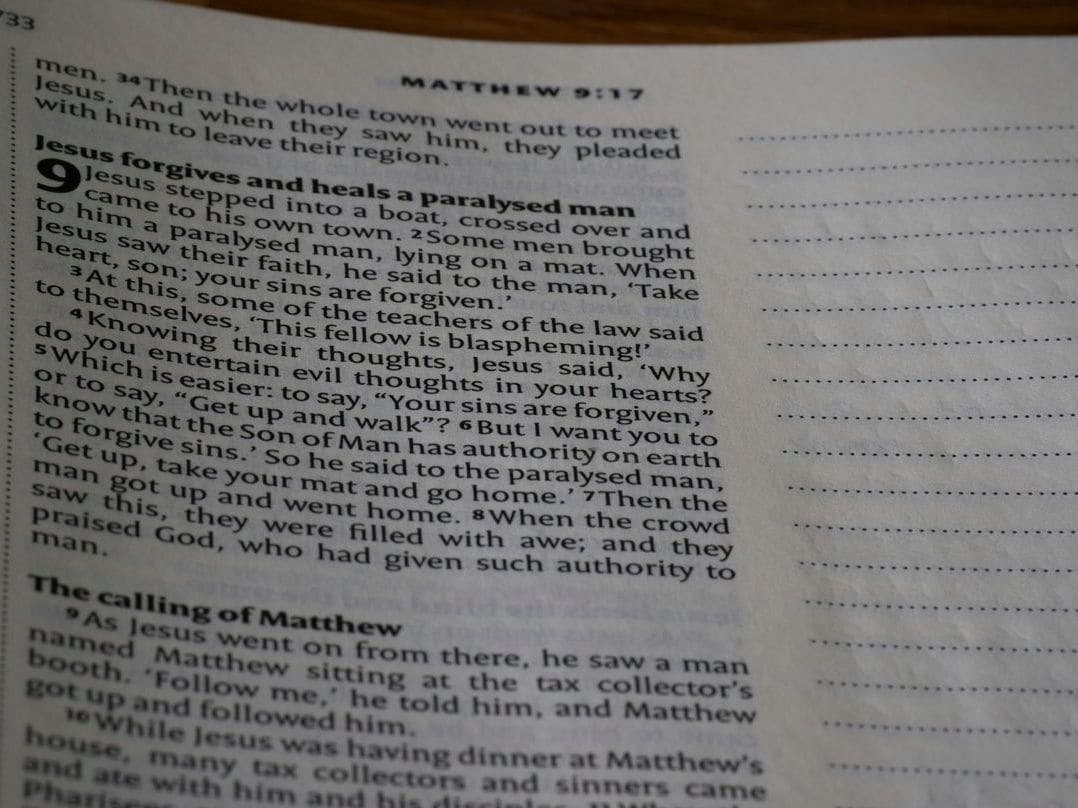 733
MATTHEW 9:17
men. 34 Then the whole town went out to meet
Jesus. And when they saw him, they pleaded
with him to leave their region.
Jesus forgives and heals a paralysed man
9 Jesus stepped into a boat, crossed over and
came to his own town. 2 Some men brought
to him a paralysed man, lying on a mat. When
Jesus saw their faith, he said to the man, ‘Take
heart, son; your sins are forgiven.’
3 At this, some of the teachers of the law said
to themselves, ‘This fellow is blaspheming!’
4 Knowing their thoughts, Jesus said, ‘Why
do you entertain evil thoughts in your hearts?
5 Which is easier: to say, “Your sins are forgiven,”
or to say, “Get up and walk”? 6 But I want you to
know that the Son of Man has authority on earth
to forgive sins.’ So he said to the paralysed man,
‘Get up, take your mat and go home.’ 7 Then the
man got up and went home. 8 When the crowd
saw this, they were filled with awe; and they
praised God, who had given such authority to
man.
The calling of Matthew
9 As Jesus went on from there, he saw a man
named Matthew sitting at the tax collector’s
booth. ‘Follow me,’ he told him, and Matthew
got up and followed him.
10 While Jesus was having dinner at Matthew’s
house, many tax collectors and sinners came
and ate with him and his disciples. 11 When the